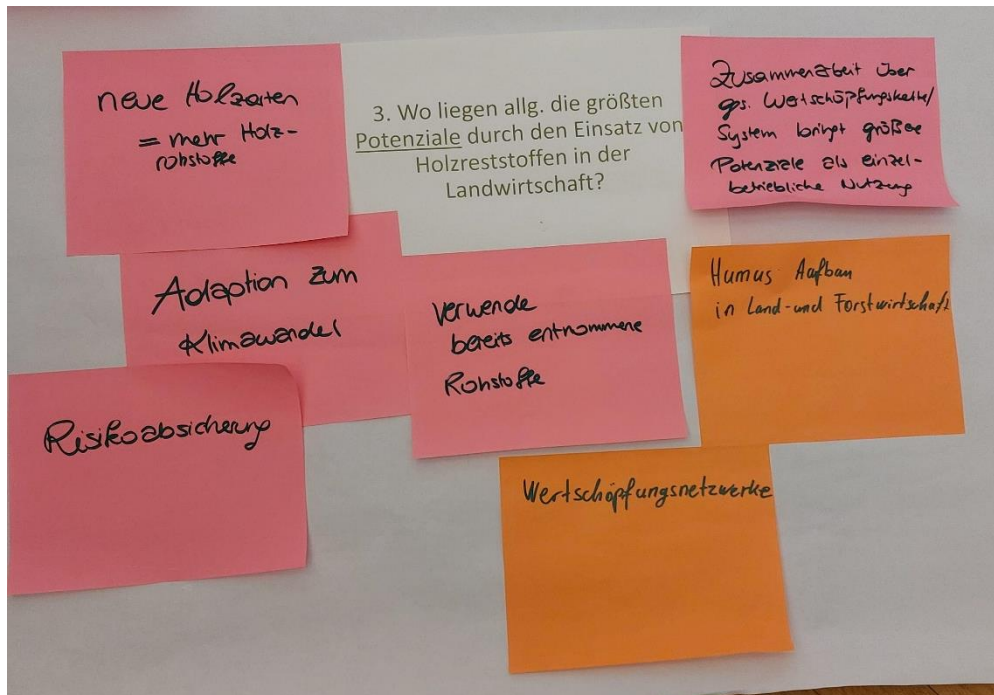 neue Holzarten
= mehr Holz-
rohstoffe
3. Wo liegen allg. die größten
Potenziale durch den Einsatz von
Holzreststoffen in der
Landwirtschaft?
Zusammenarbeit über
ges. Wertschöpfungskette/
System bringt größere
Potenziale als einzel-
betriebliche Nutzung
Adaption zum
Klimawandel
Verwende
bereits entnommene
Rohstoffe
Humus Aufbau
in Land- und Forstwirtschaft
Risikoabsicherung
Wertschöpfungsnetzwerke